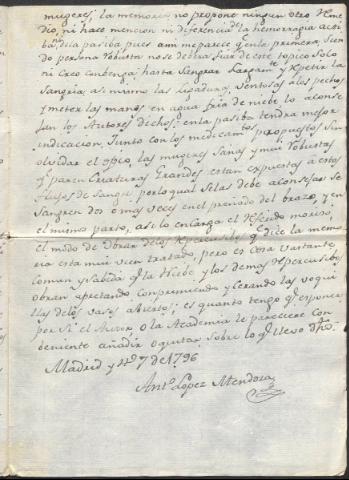 mugeres; la memoria no propone ningun otro Reme
dio, ni hace mencion ni diferencia del la hemorragia acti
ba, a la pasiba, pues aun me parece q.e en la primera, sien
do persona Robusta no se debiera fiar de este topico solo
ni creo combenga, hasta sangrar Largam.te y Repetir la
sangria, asi mismo las ligaduras, Ventosas a los pechos
y meter las manos en agua fria de niebe lo aconse
jan los Autores Dichos: en la pasiba tendra mejor
indicacion, Junto con los medicam.tos propuestos sin
olvidar el opio, las mugeres sanas y mui Robustas
q.e paren Criaturas Grandes estan expuestas a estos
flujos de sangre, por lo qual se las debe aconsejar se
sangren dos o mas veces en el periodo del brazo, y en
el mismo parto, asi lo encarga el Referido
el modo de obrar de los Repercusibos q.e dice la memo
ria esta mui vien tratado, pero es cosa vastante
comun y sabida q.e la Niebe y los demas Repercusibos
obren apretando, comprimiendo y cerando las voqui
llas de los vasos abiertos; es quanto tengo q.e esponer
por si el Autor, o la Academia le pareciere con
beniente añadir o quitar sobre lo q.e llevo dho.
Madrid y 7 de 1796
Ant.o Lopez Mendoza